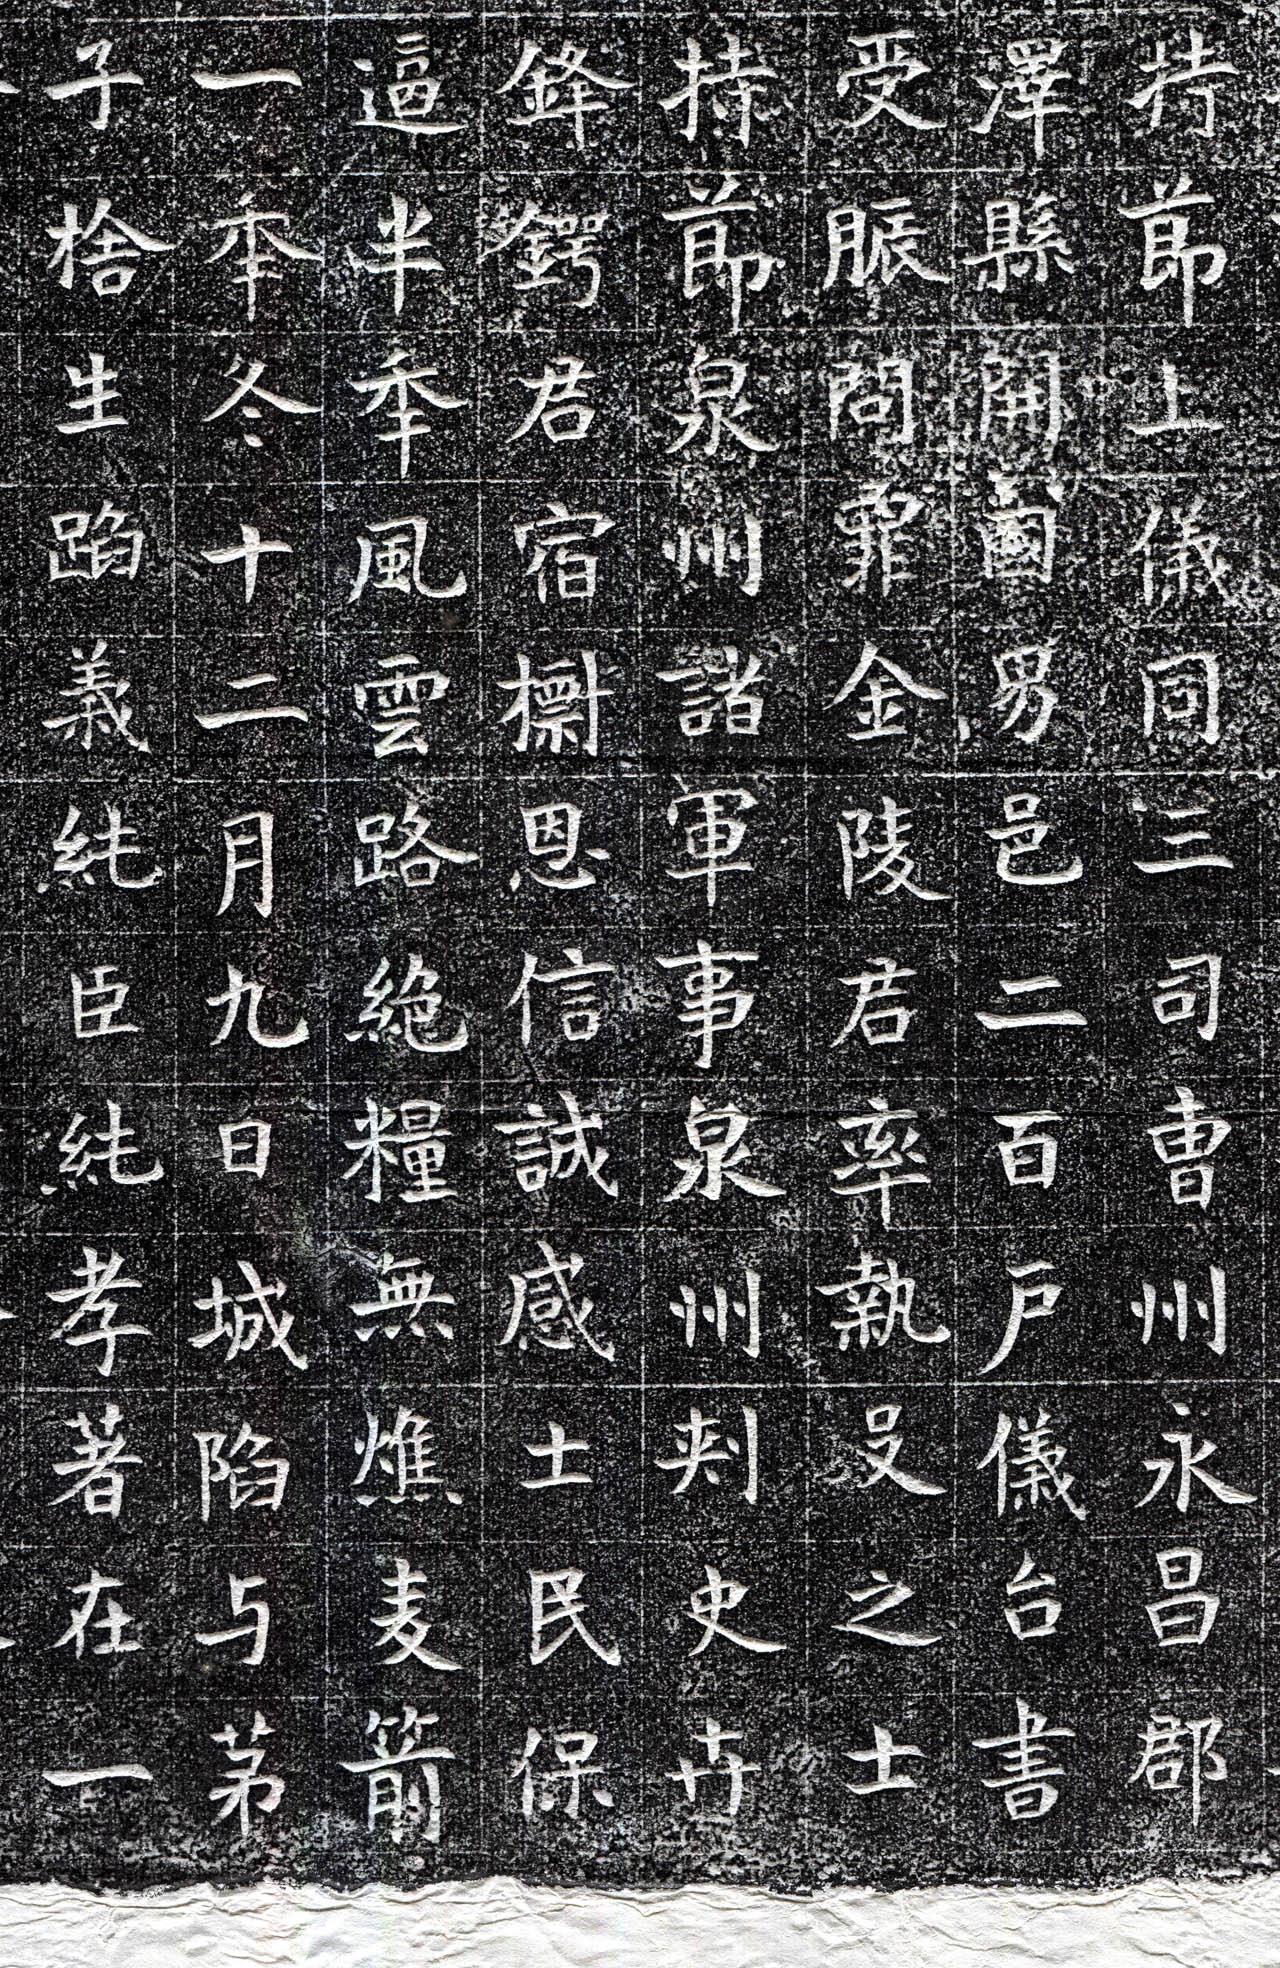 持節上儀同三司曹州永昌郡
澤縣開國男邑二百戶儀台書
受脤問罪金陵君率執殳之士
持節泉州諸軍事泉州刺史廿
鋒鍔君宿檦恩信誠感士民保
逼半年風雲路絕糧無燋麦箭
一年冬十二月九日城陷与苐
子捨生蹈義純臣純孝著在一